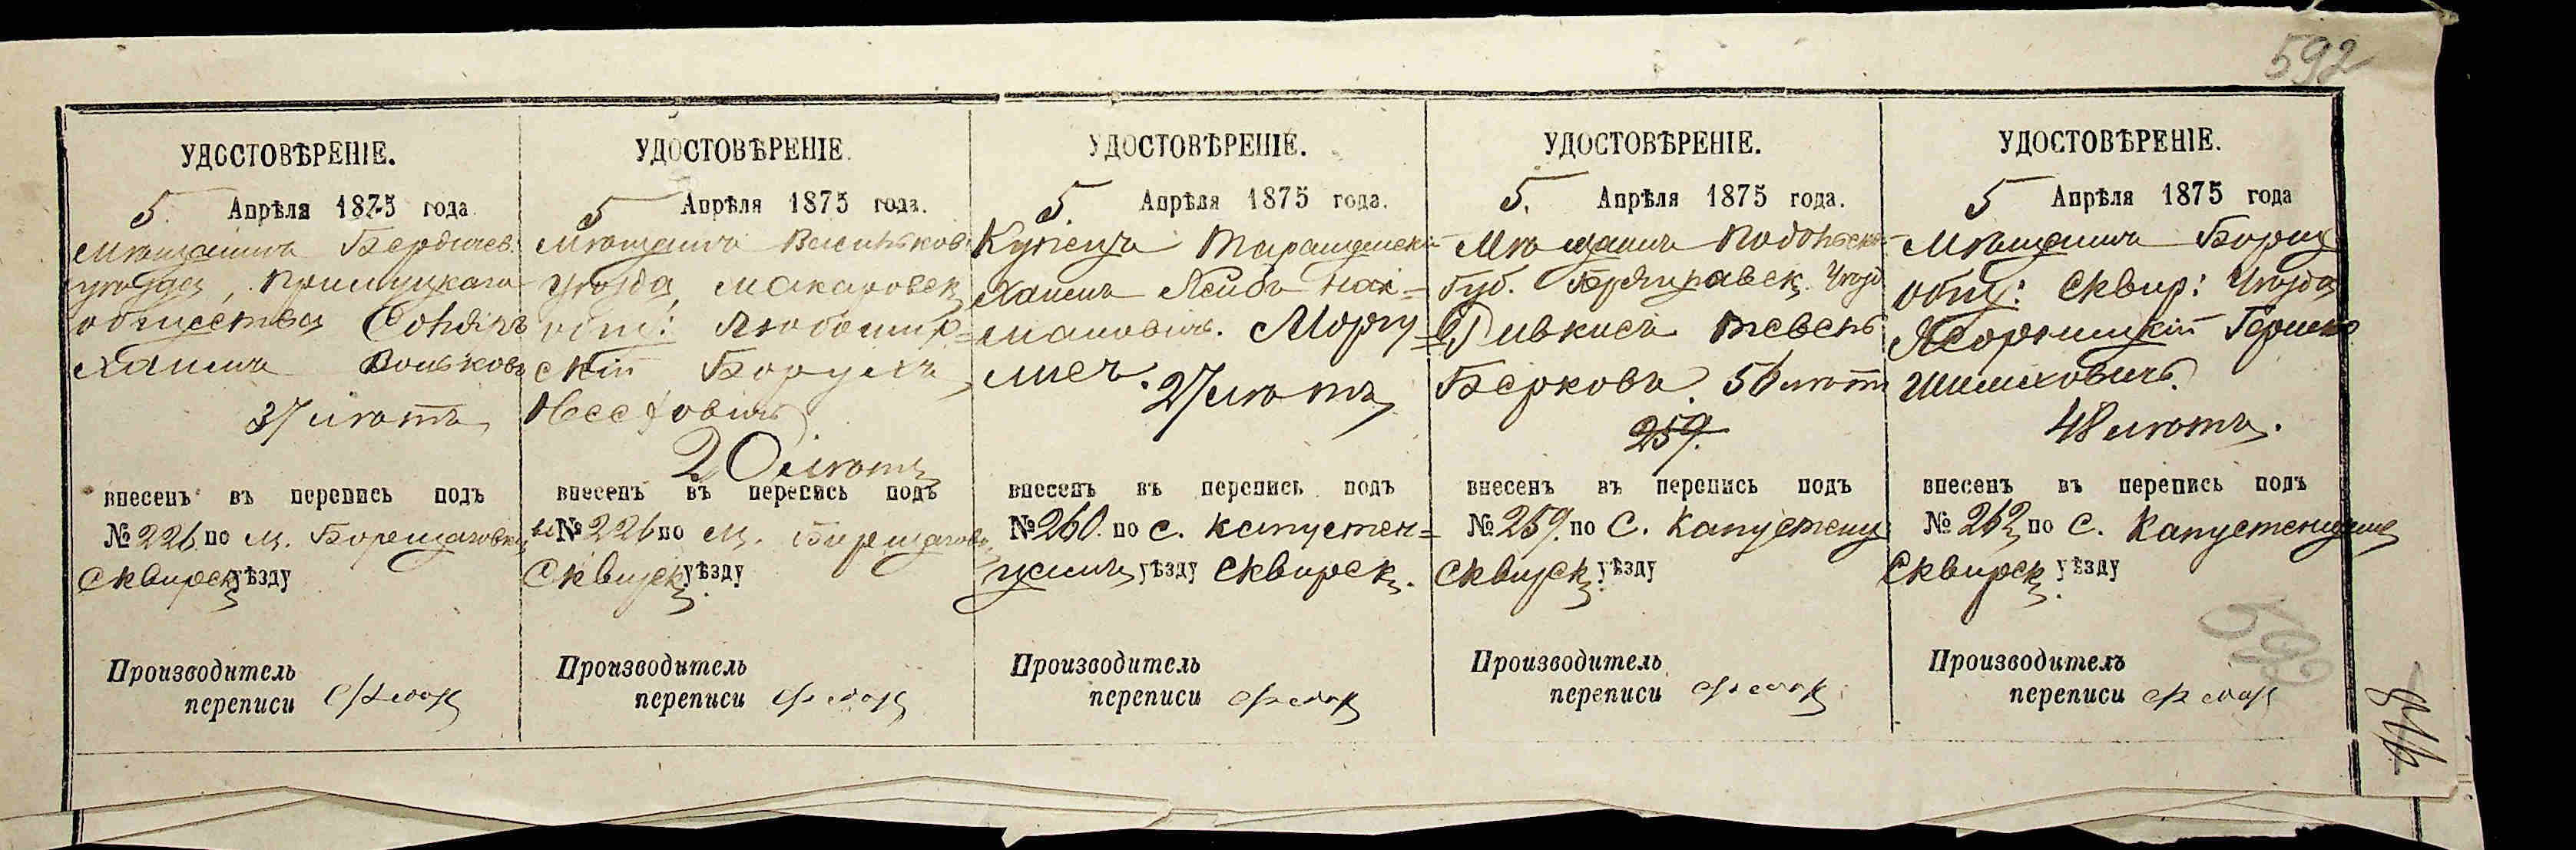 592
УДОСТОВѢРЕНІЕ.
5. Апрѣля 1875 года
Мѣщанинъ Бердичев.
уѣзда, Прилуцкаго
общества
Хаимъ Вольковъ
37 лѣтъ
внесенъ въ перепись подъ
№ 226 по м. Борщаговкѣ
Сквирск. уѣзду
Производитель
переписи
УДОСТОВѢРЕНІЕ.
5 Апрѣля 1875 года.
Мѣщанинъ Васильков.
уѣзда, Макаровск.
общ: Любомир=
скій Борухъ
20 лѣтъ
внесенъ въ перепись подъ
№ 226 по м. Борщаговкѣ
Сквирск. уѣзду
Производитель
переписи
УДОСТОВѢРЕНІЕ.
5. Апрѣля 1875 года.
Купецъ Таращанскій
Хаимъ Лейба Нах=
мановичъ. Моргу=
лисъ. 27 лѣтъ
внесенъ въ перепись подъ
№ 260. по с. Капустен=
цамъ уѣзду Сквирск.
Производитель
переписи
УДОСТОВѢРЕНІЕ.
5. Апрѣля 1875 года.
Мѣщанинъ Подольской
Губ. уѣзд
Ривкисъ Тевель
Берковъ. 56 лѣтъ
259.
внесенъ въ перепись подъ
№ 259. по с. Капустенц
Сквирск. уѣзду
Производитель
переписи
УДОСТОВѢРЕНІЕ.
5 Апрѣля 1875 года
Мѣщанинъ Борщ
общ: Сквир: уѣзда
Гершко
48 лѣтъ.
внесенъ въ перепись подъ
№ 262 по с. Капустенцамъ
Сквирск. уѣзду
Производитель
переписи